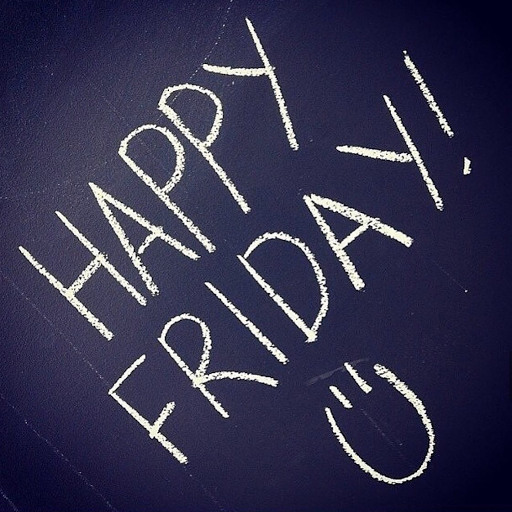 HAPPY
FRIDAY!